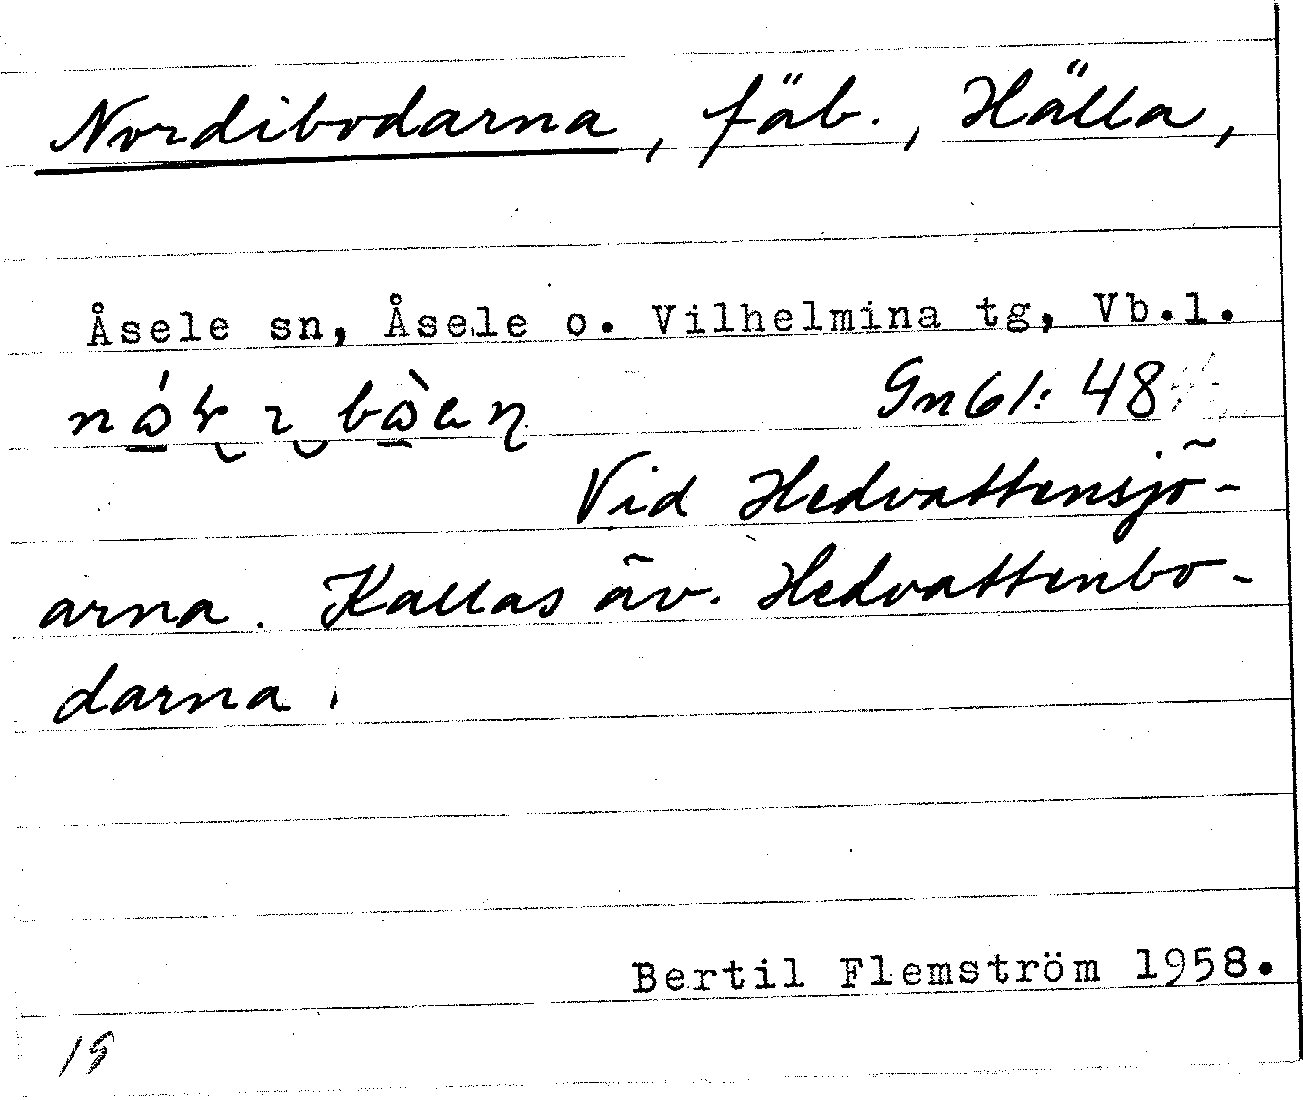 Nordibodarna, fäb., Hälla,
Åsele sn, Åsele o. Vilhelmina tg, Vb.l.
Gnbl: 48
Vid Hedvattensjö-
arna. Kallas äv. Hedvattenbo-
darna.
Bertil Flemström 1958.
19